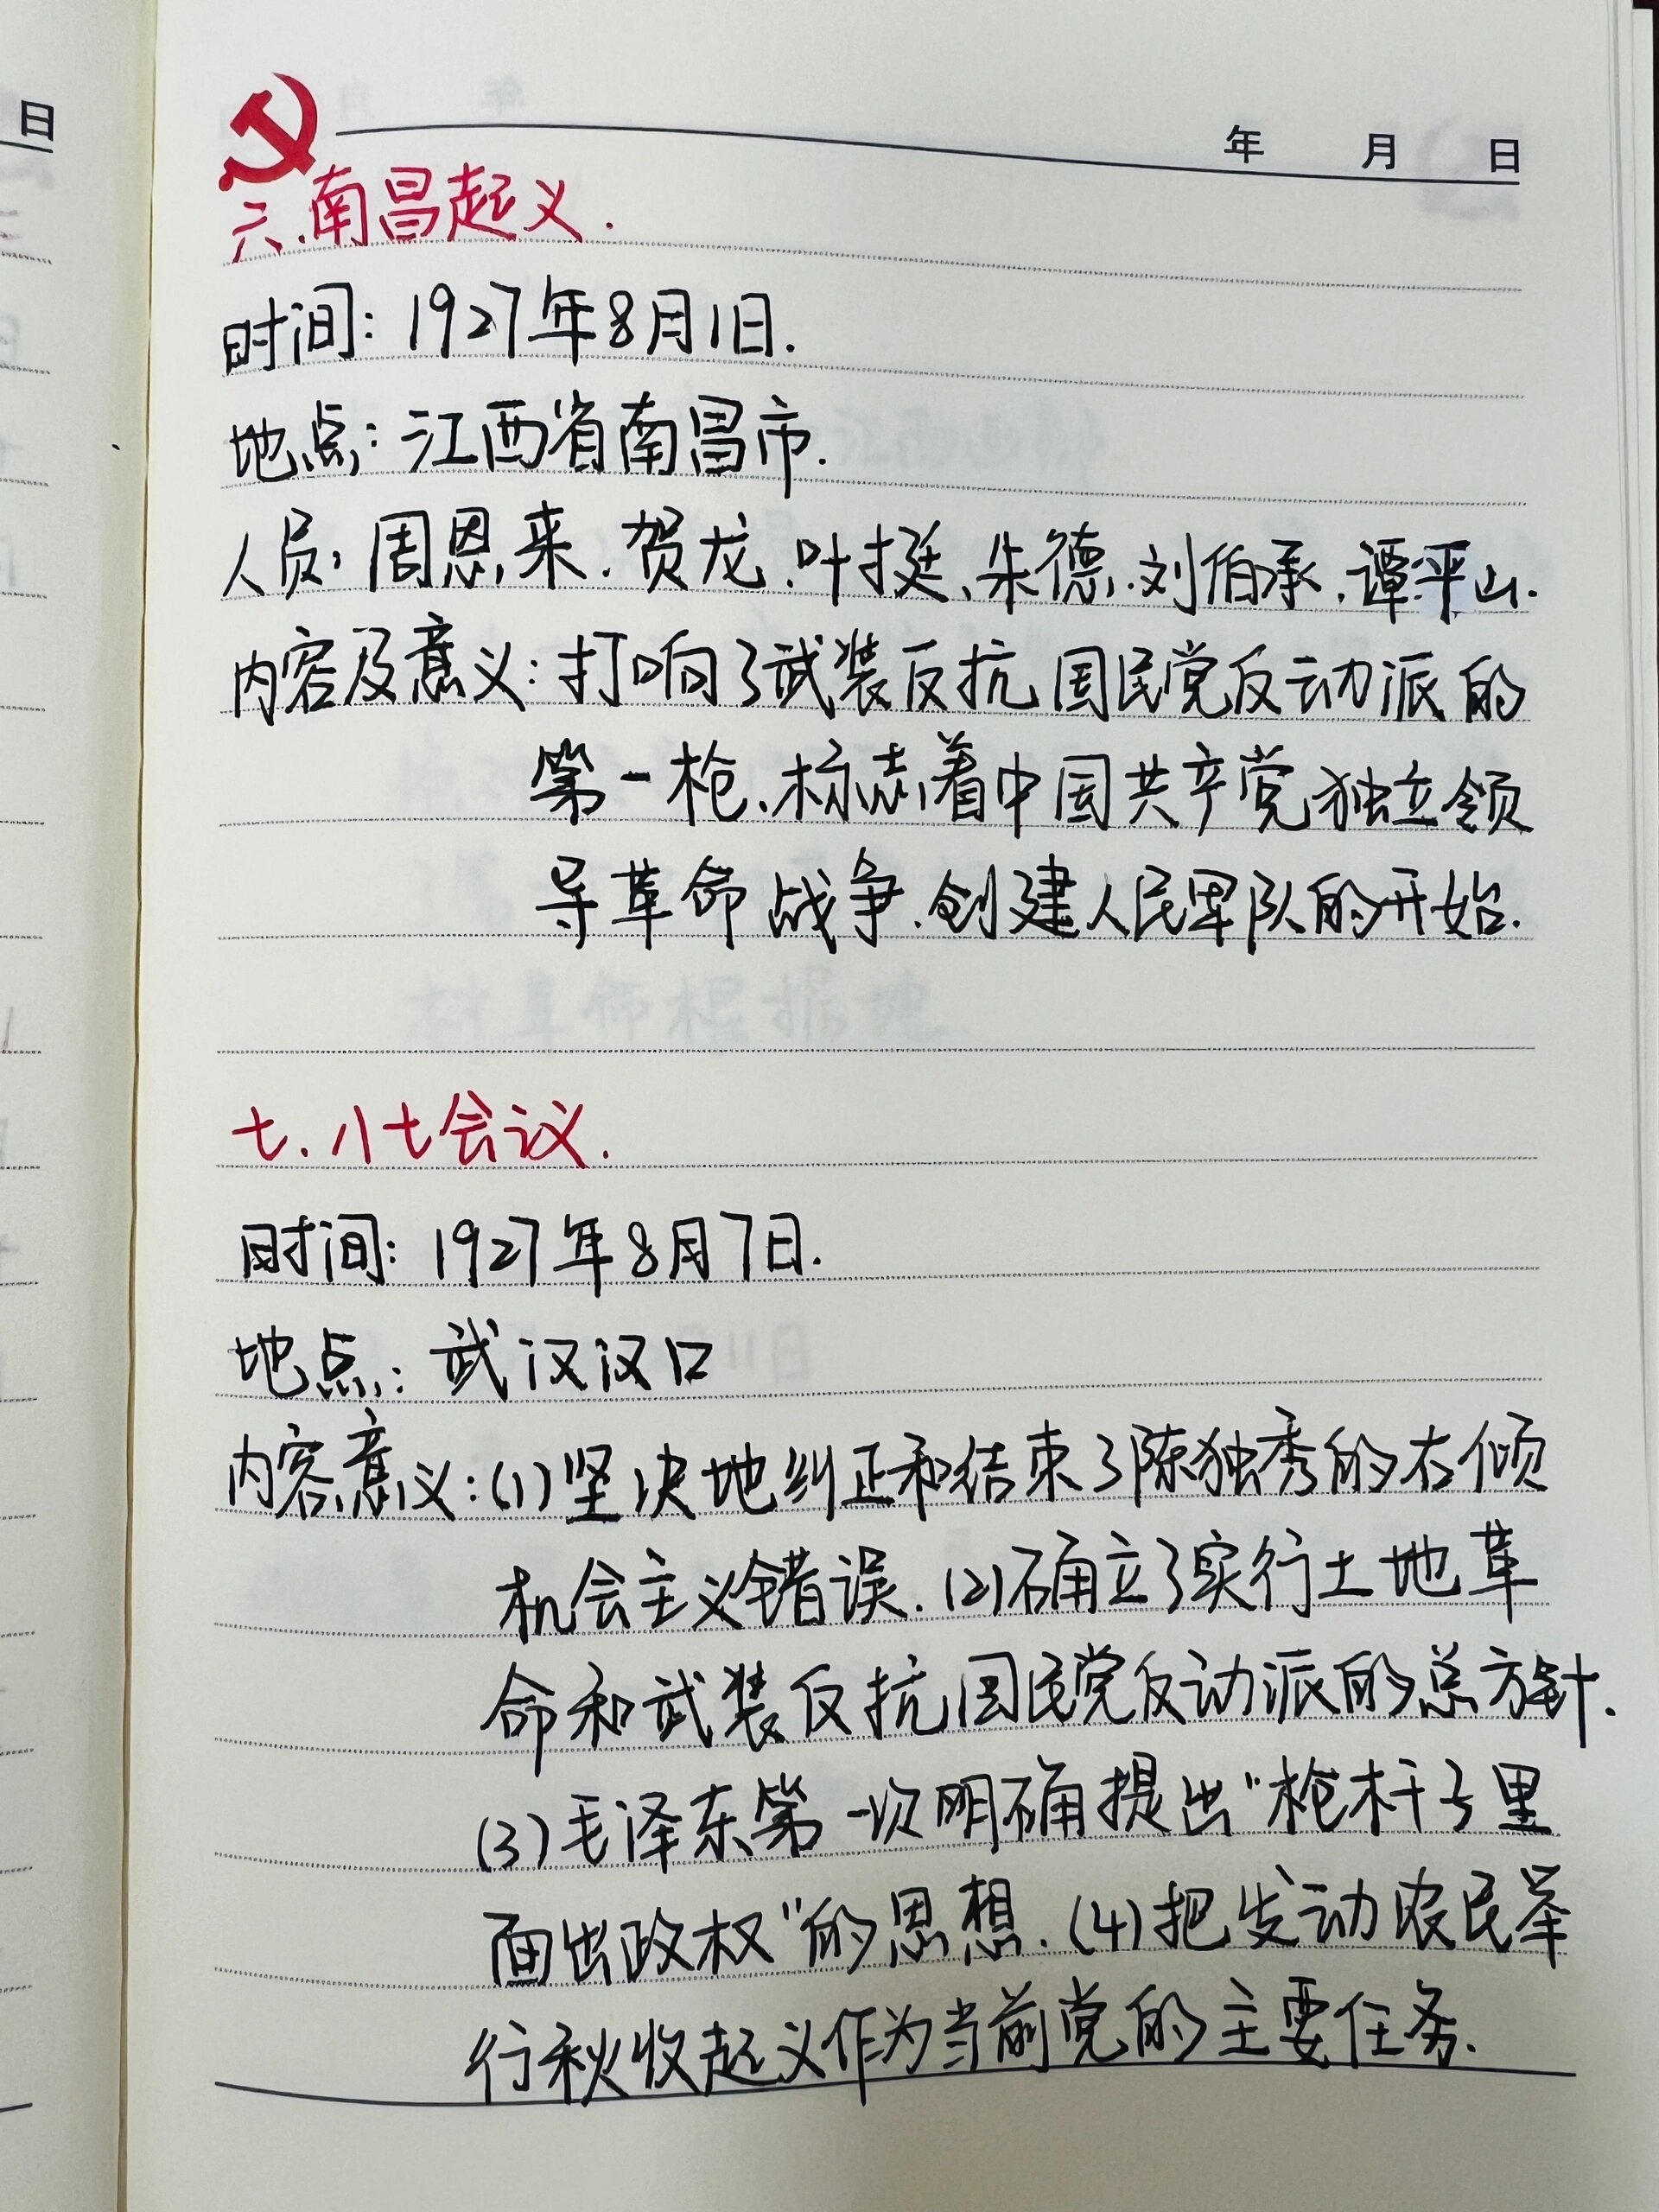 日
年 月 日
六.南昌起义.
时间: 1927年8月1日.
地点: 江西省南昌市.
人员: 周恩来.贺龙.叶挺、朱德.刘伯承.谭平山.
内容及意义: 打响了武装反抗国民党反动派的
第一枪、标志着中国共产党独立领
导革命战争.创建人民军队的开始.
七.八七会议.
时间: 1927年8月7日.
地点: 武汉汉口
内容意义: (1)坚决地纠正和结束了陈独秀的右倾
机会主义错误. (2)确立了实行土地革
命和武装反抗国民党反动派的总方针.
(3)毛泽东第一次明确提出“枪杆子里
面出政权”的思想. (4)把发动农民举
行秋收起义作为当前党的主要任务.